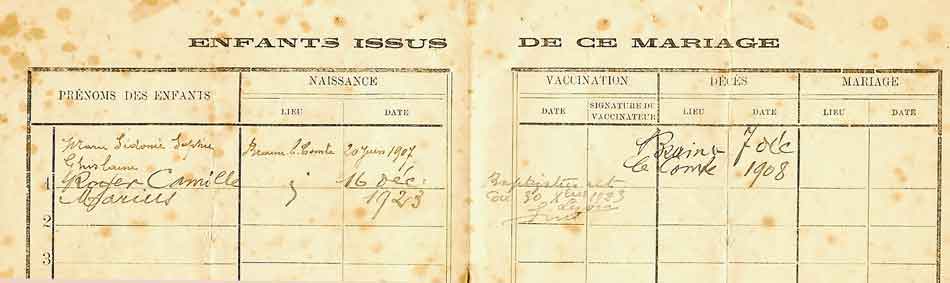 ENFANTS ISSUS DE CE MARIAGE
PRÉNOMS DES ENFANTS
NAISSANCE
LIEU
DATE
VACCINATION
DATE
SIGNATURE DU
VACCINATEUR
DÉCÈS
LIEU
DATE
MARIAGE
LIEU
DATE
Marie Sidonie Sophie
Ghislaine
Braine le Comte
20 juin 1907
Braine
le Comte
7 déc
1908
1
Roger Camille
Marius
16 déc.
1923
30 Xbre 1923
2
3